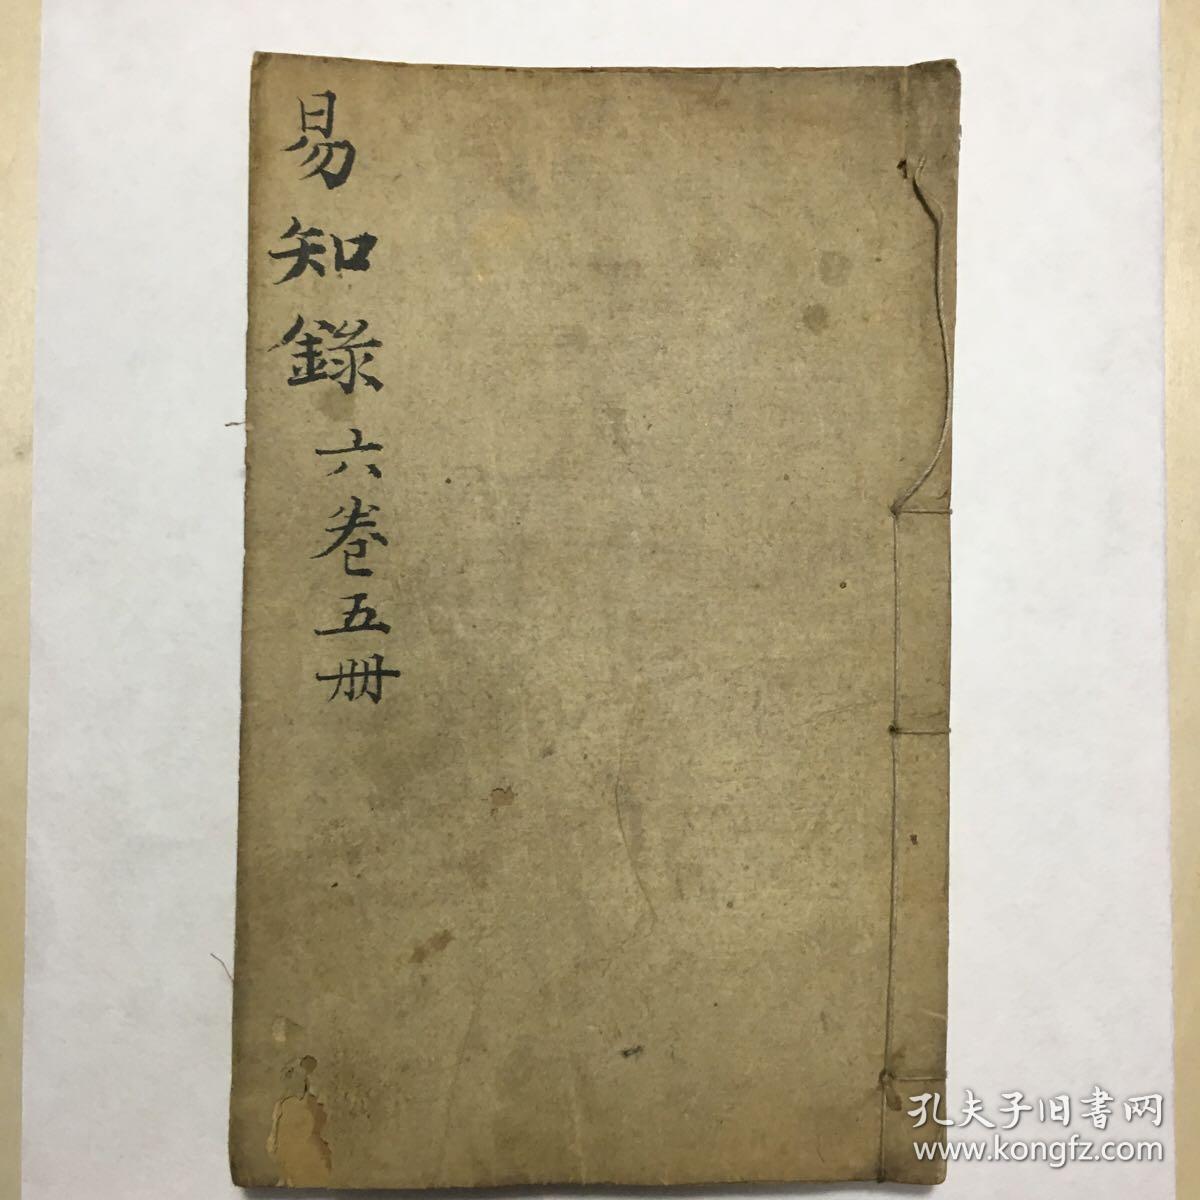 易知錄六卷五册
孔夫子旧書网
www.kongfz.com